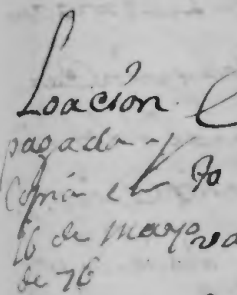 Loacion
pagada y
Copia en 30
16 de mayo
de 76